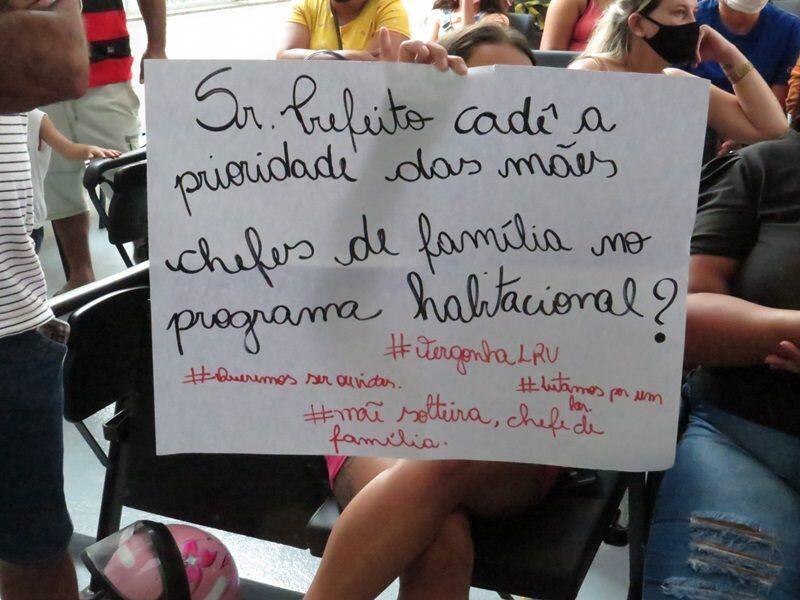 Sr. Prefeito cadê a
prioridade das mães
chefes de família no
programa habitacional?
#Vergonha LRV
#Queremos ser ouvidas.
#Lutamos por um
lar.
#mãe solteira, chefe de
família.